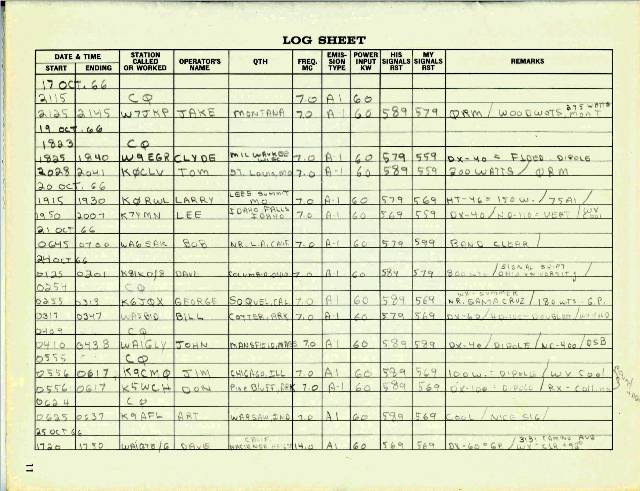 LOG SHEET
DATE & TIME STATION CALLED OR WORKED OPERATOR'S NAME QTH FREQ. MC EMIS- SION TYPE POWER INPUT KW HIS SIGNALS RST MY SIGNALS RST REMARKS
START ENDING
17 OCT. 66
2115 CQ 7.0 A1 60
2125 2145 W7JKP JAKE MONTANA 7.0 A-1 60 589 579 QRM / WOODWOTS,
19 OCT. 66
1823 CQ
1825 1840 W9EGR CLYDE MILWAUKEE WISC. 7.0 A-1 60 579 559 DX-40 = FIXED DIPOLE
2028 2041 K0CLV TOM ST. LOUIS, MO 7.0 A-1 60 589 559 200 WATTS / QRM
20 OCT. 66
1915 1930 K0RWL LARRY LEES SUMMIT MO 7.0 A-1 60 579 569 HT-46= 150W. / 75A1 /
1950 2007 K7YMN LEE IDAHO FALLS IDAHO 7.0 A-1 60 569 559 DX-40 / = VERT /
21 OCT 66
0645 0700 WA6SAK BOB NR. L.A. CALIF. 7.0 A-1 60 579 599 BAND CLEAR /
24 OCT 66
0125 0201 K8IKO/8 DAVE COLUMBIA, OHIO 7.0 A1 60 589 579 SIGNAL SHIFT / OHIO UNIVERSITY /
0254 CQ
0255 0318 K6JQX GEORGE SOQUEL, CAL 7.0 A1 60 589 569 NR. SANTA CRUZ / 180 WTS. G.P.
0317 0347 BILL COTTER, ARK 7.0 A1 60 579 569 DX-60 /
2409 CQ
0410 0438 WA1GLY JOHN MANSFIELD, MASS 7.0 A1 60 589 589 DX-40 / DIPOLE / NC-400 / DSB
0555 CQ
0556 0617 K9CMQ JIM CHICAGO, ILL 7.0 A1 60 589 569 100W. = DIPOLE / WX COOL
0556 0617 K5WCH DON PINE BLUFF, ARK 7.0 A-1 60 589 569 DX-100 = DIPOLE / RX - Collins
0624 CQ
0625 0637 K9AFL ART WARSAW, IND 7.0 A1 60 589 569 COOL / NICE SIG /
25 OCT 66
1720 1750 DAVE CALIF. 14.0 A1 60 569 569 DX-60 = GP /
11